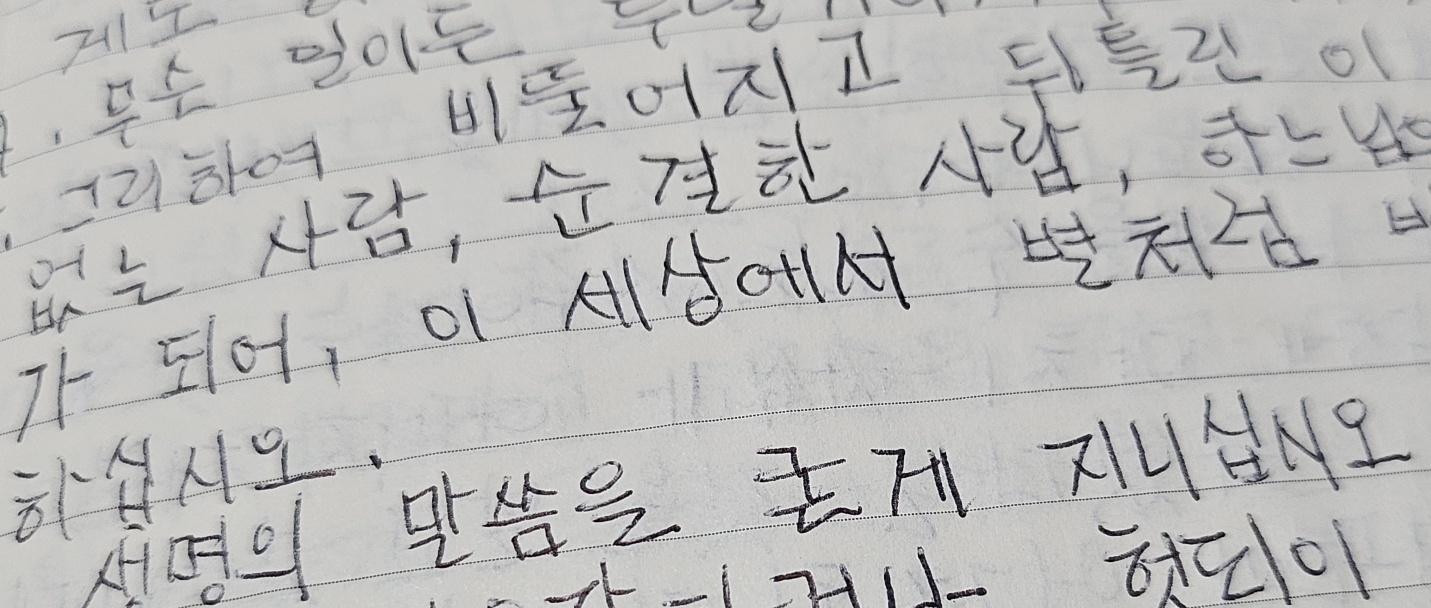 게도
. 무슨 일이든
. 그리하여 비뚤어지고 뒤틀린 이
없는 사람, 순결한 사람, 하느님의
가 되어, 이 세상에서 별처럼
하십시오.
생명의 말씀을 굳게 지니십시오
헛되이